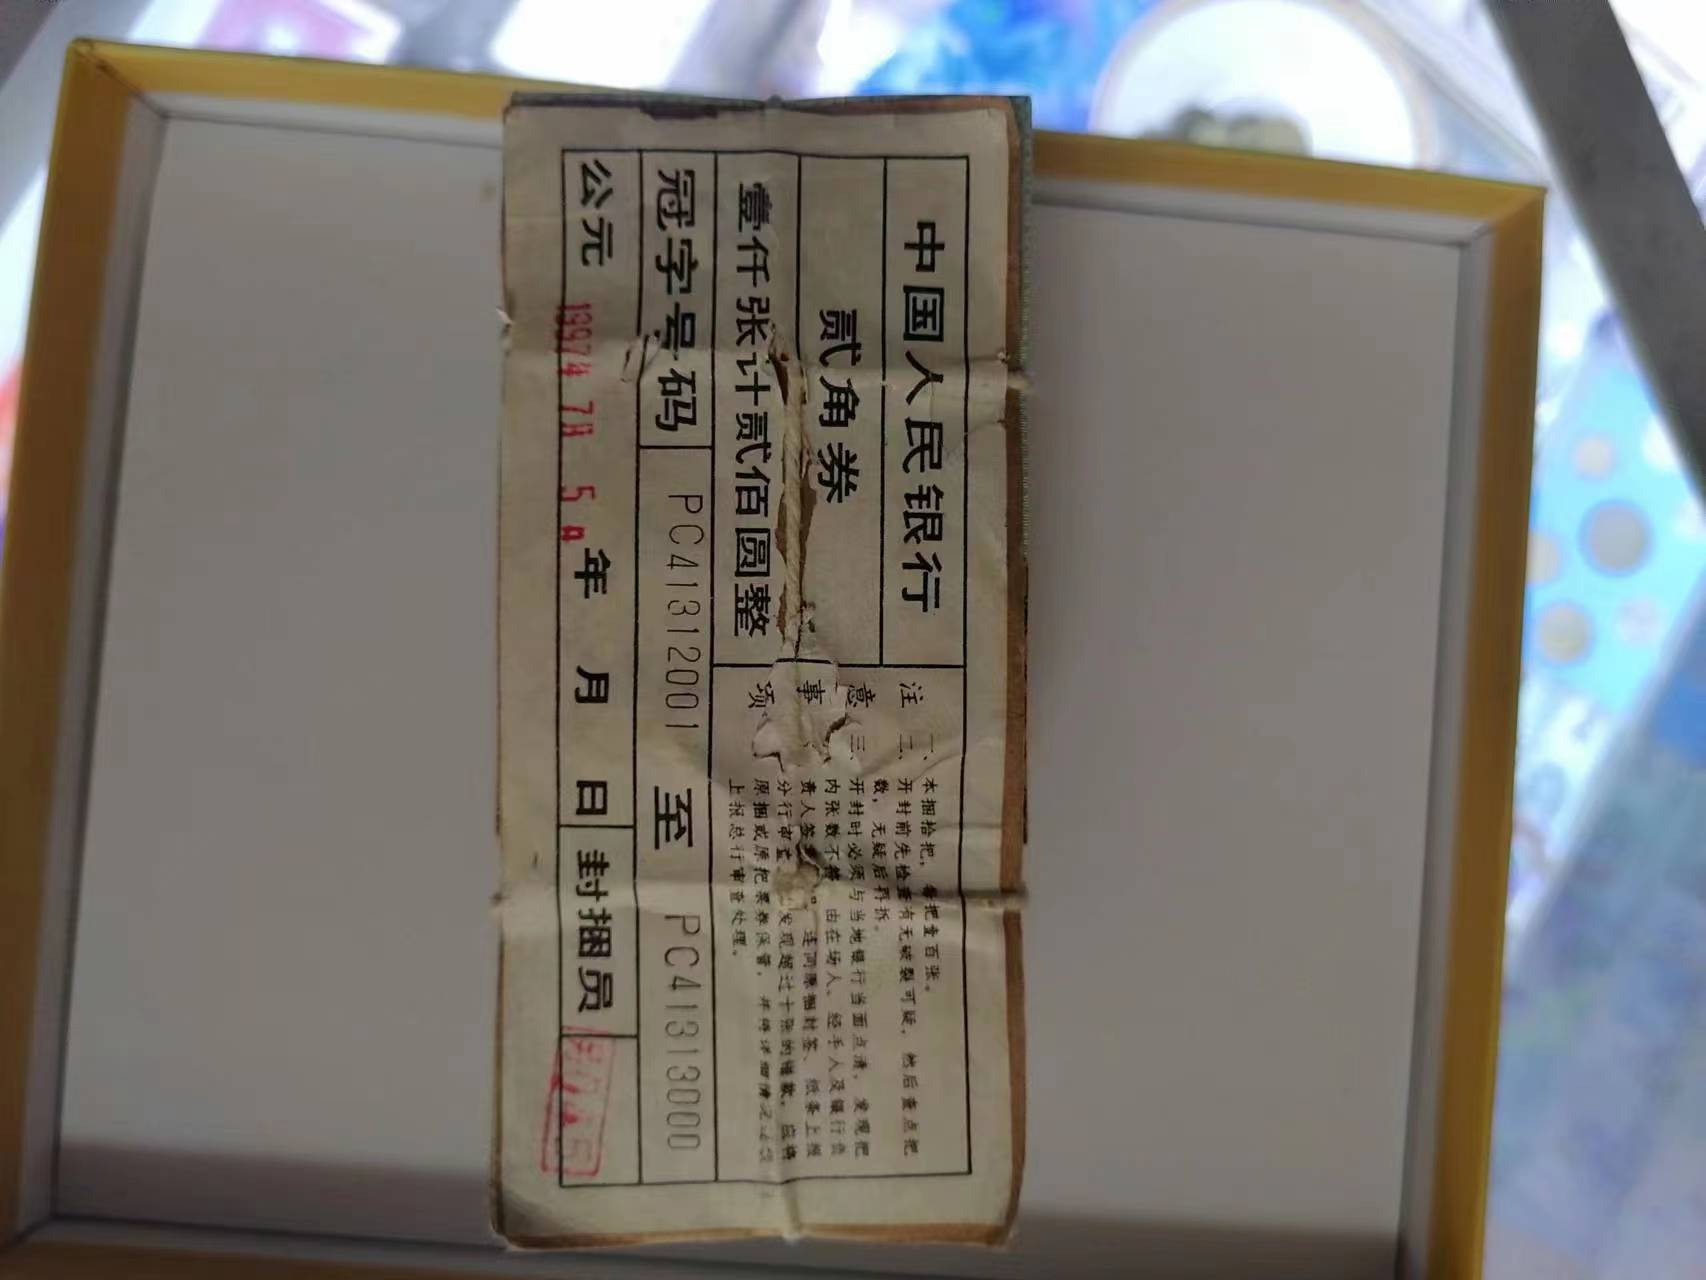 中国人民银行
贰角券
壹仟张计贰佰圆整
注意事项
一、本捆拾把，每把壹百张。
二、开封前先检查有无破裂可疑，然后查点把
数，无疑后再拆。
三、开封时必须与当地银行当面点清，发现把
内张数不符 由在场人、经手人及银行负
责人签 连同原捆封签、纸条上报
分行审查 发现超过十张的错款，应将
原捆或原把票券保管，并将详细情况
上报总行审查处理。
冠字号码 PC41312001 至 PC41313000
公元 1997年 7月 5日 年 月 日 封捆员